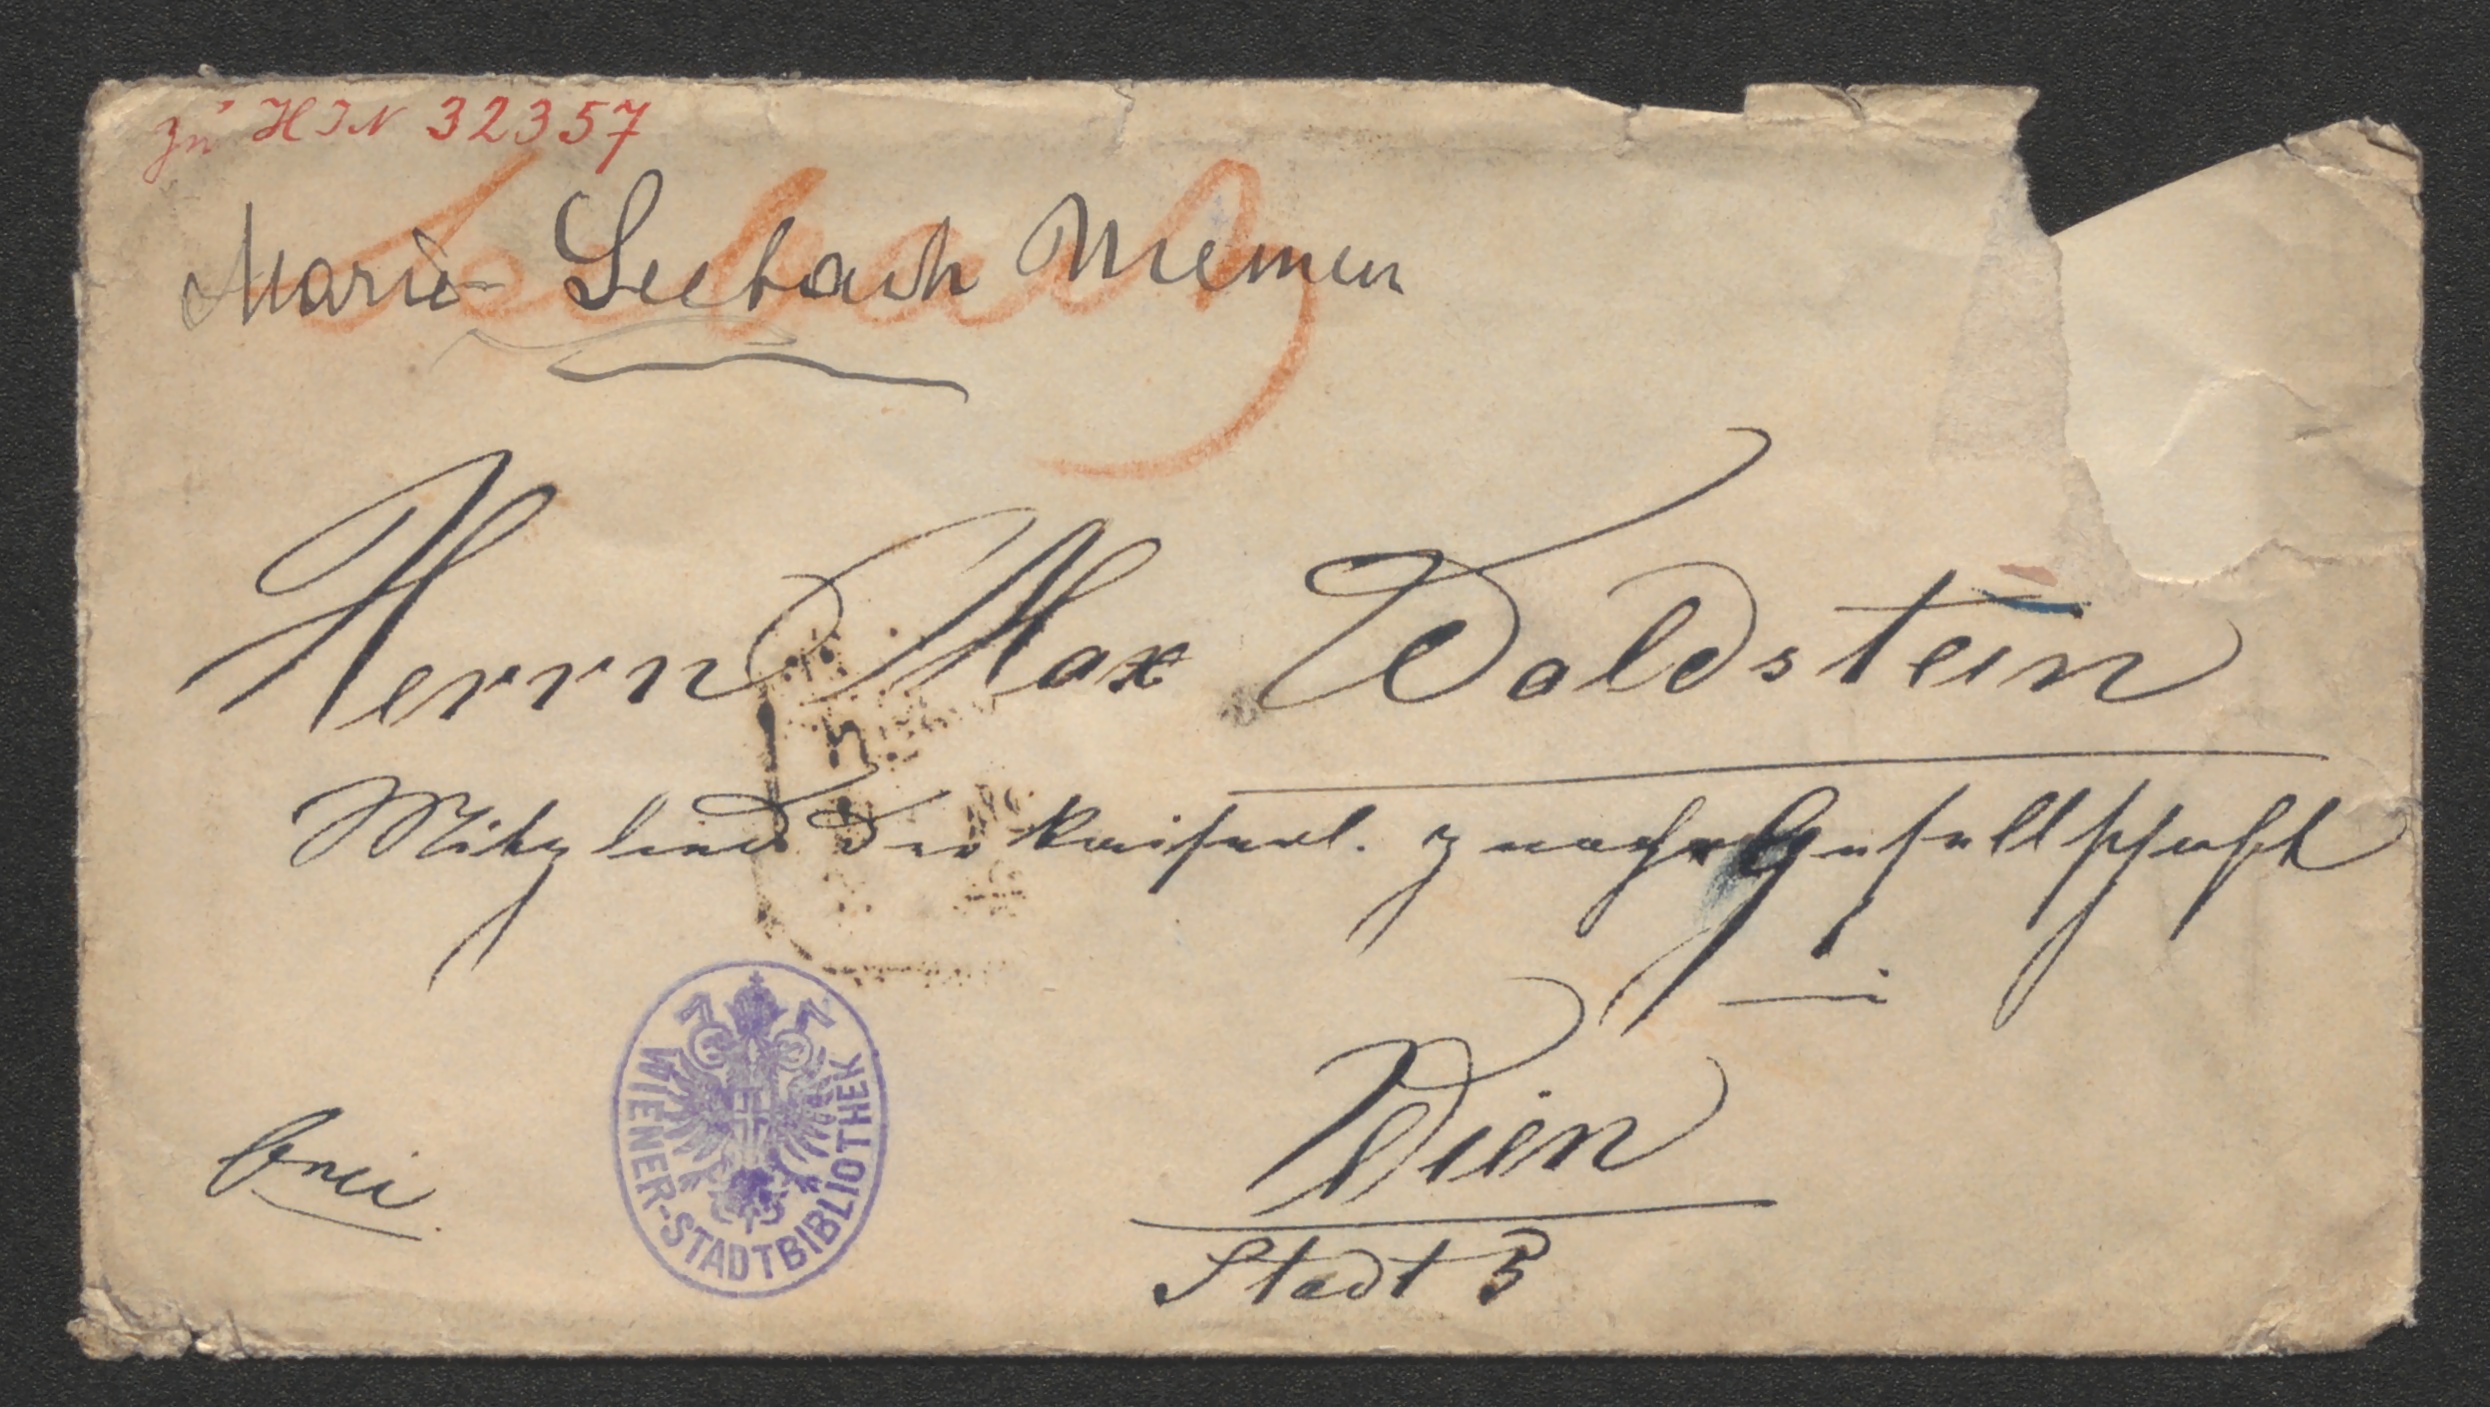 zu HIN 32357
Marie Seebach Niemann
Herrn Max Waldstein
Mitglied der kaiserl. geograf. Gesellschaft
Wien
frei
Stadt 3
WIENER-STADTBIBLIOTHEK